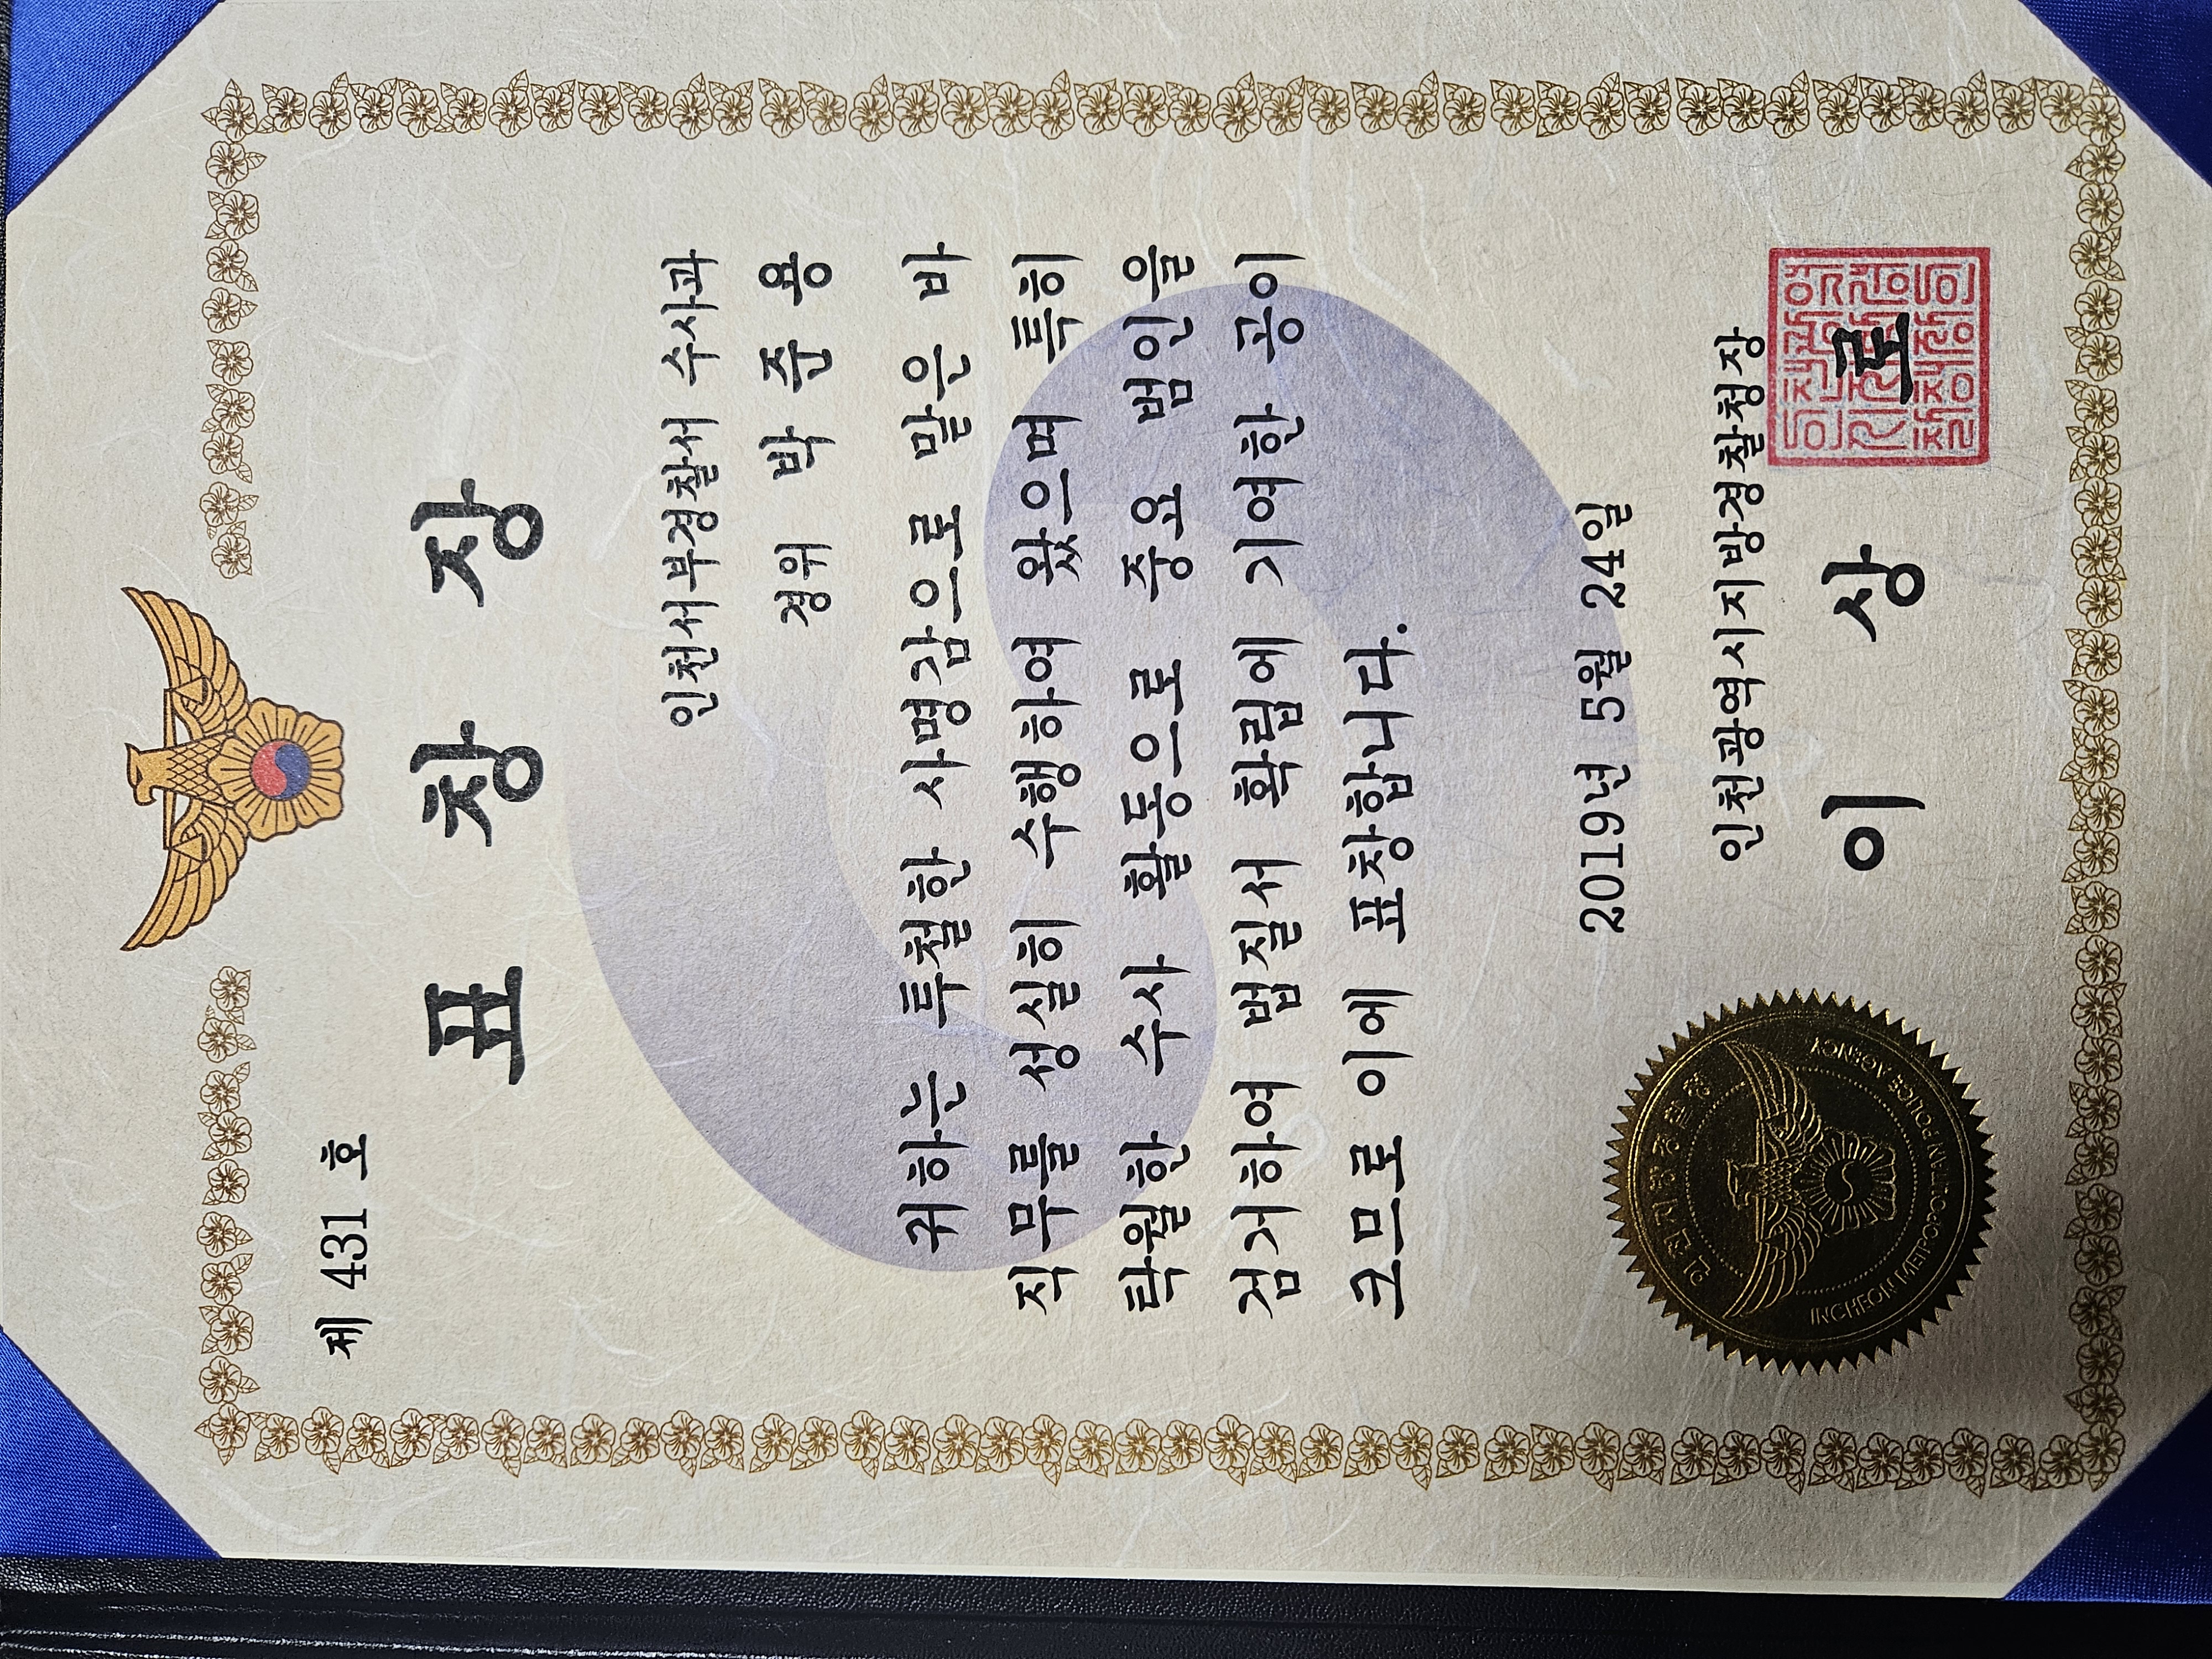 제 431 호
표 창 장
인천서부경찰서 수사과
경위 박 준 용
귀하는 투철한 사명감으로 맡은 바
직무를 성실히 수행하여 왔으며 특히
탁월한 수사 활동으로 주요 범인을
검거하여 법질서 확립에 기여한 공이
크므로 이에 표창합니다.
2019년 5월 24일
인천광역시지방경찰청장
이 상 로
인천지방경찰청
INCHEON METROPOLITAN POLICE AGENCY